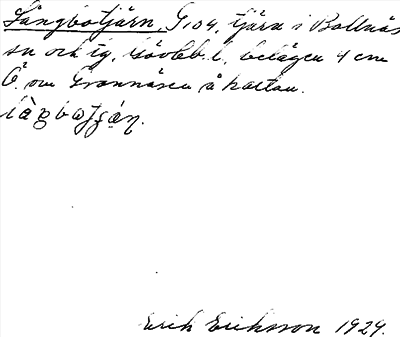 Långbotjärn, G:04, tjärn i Bollnäs
sn och tg, belägen 4 cm
Ö om Grannäsen å kartan.
Erik Eriksson 1929.